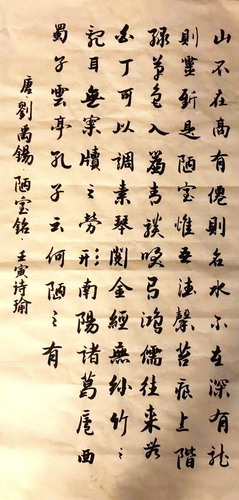 山不在高有僊則名水不在深有龍
則靈斯是陋室惟吾德馨苔痕上階
緑草色入簾青談咲有鴻儒往來無
白丁可以調素琴閱金經無絲竹之
亂耳無案牘之勞形南陽諸葛廬西
蜀子雲亭孔子云何陋之有
唐·劉禹錫·陋室銘·壬寅詩瑜